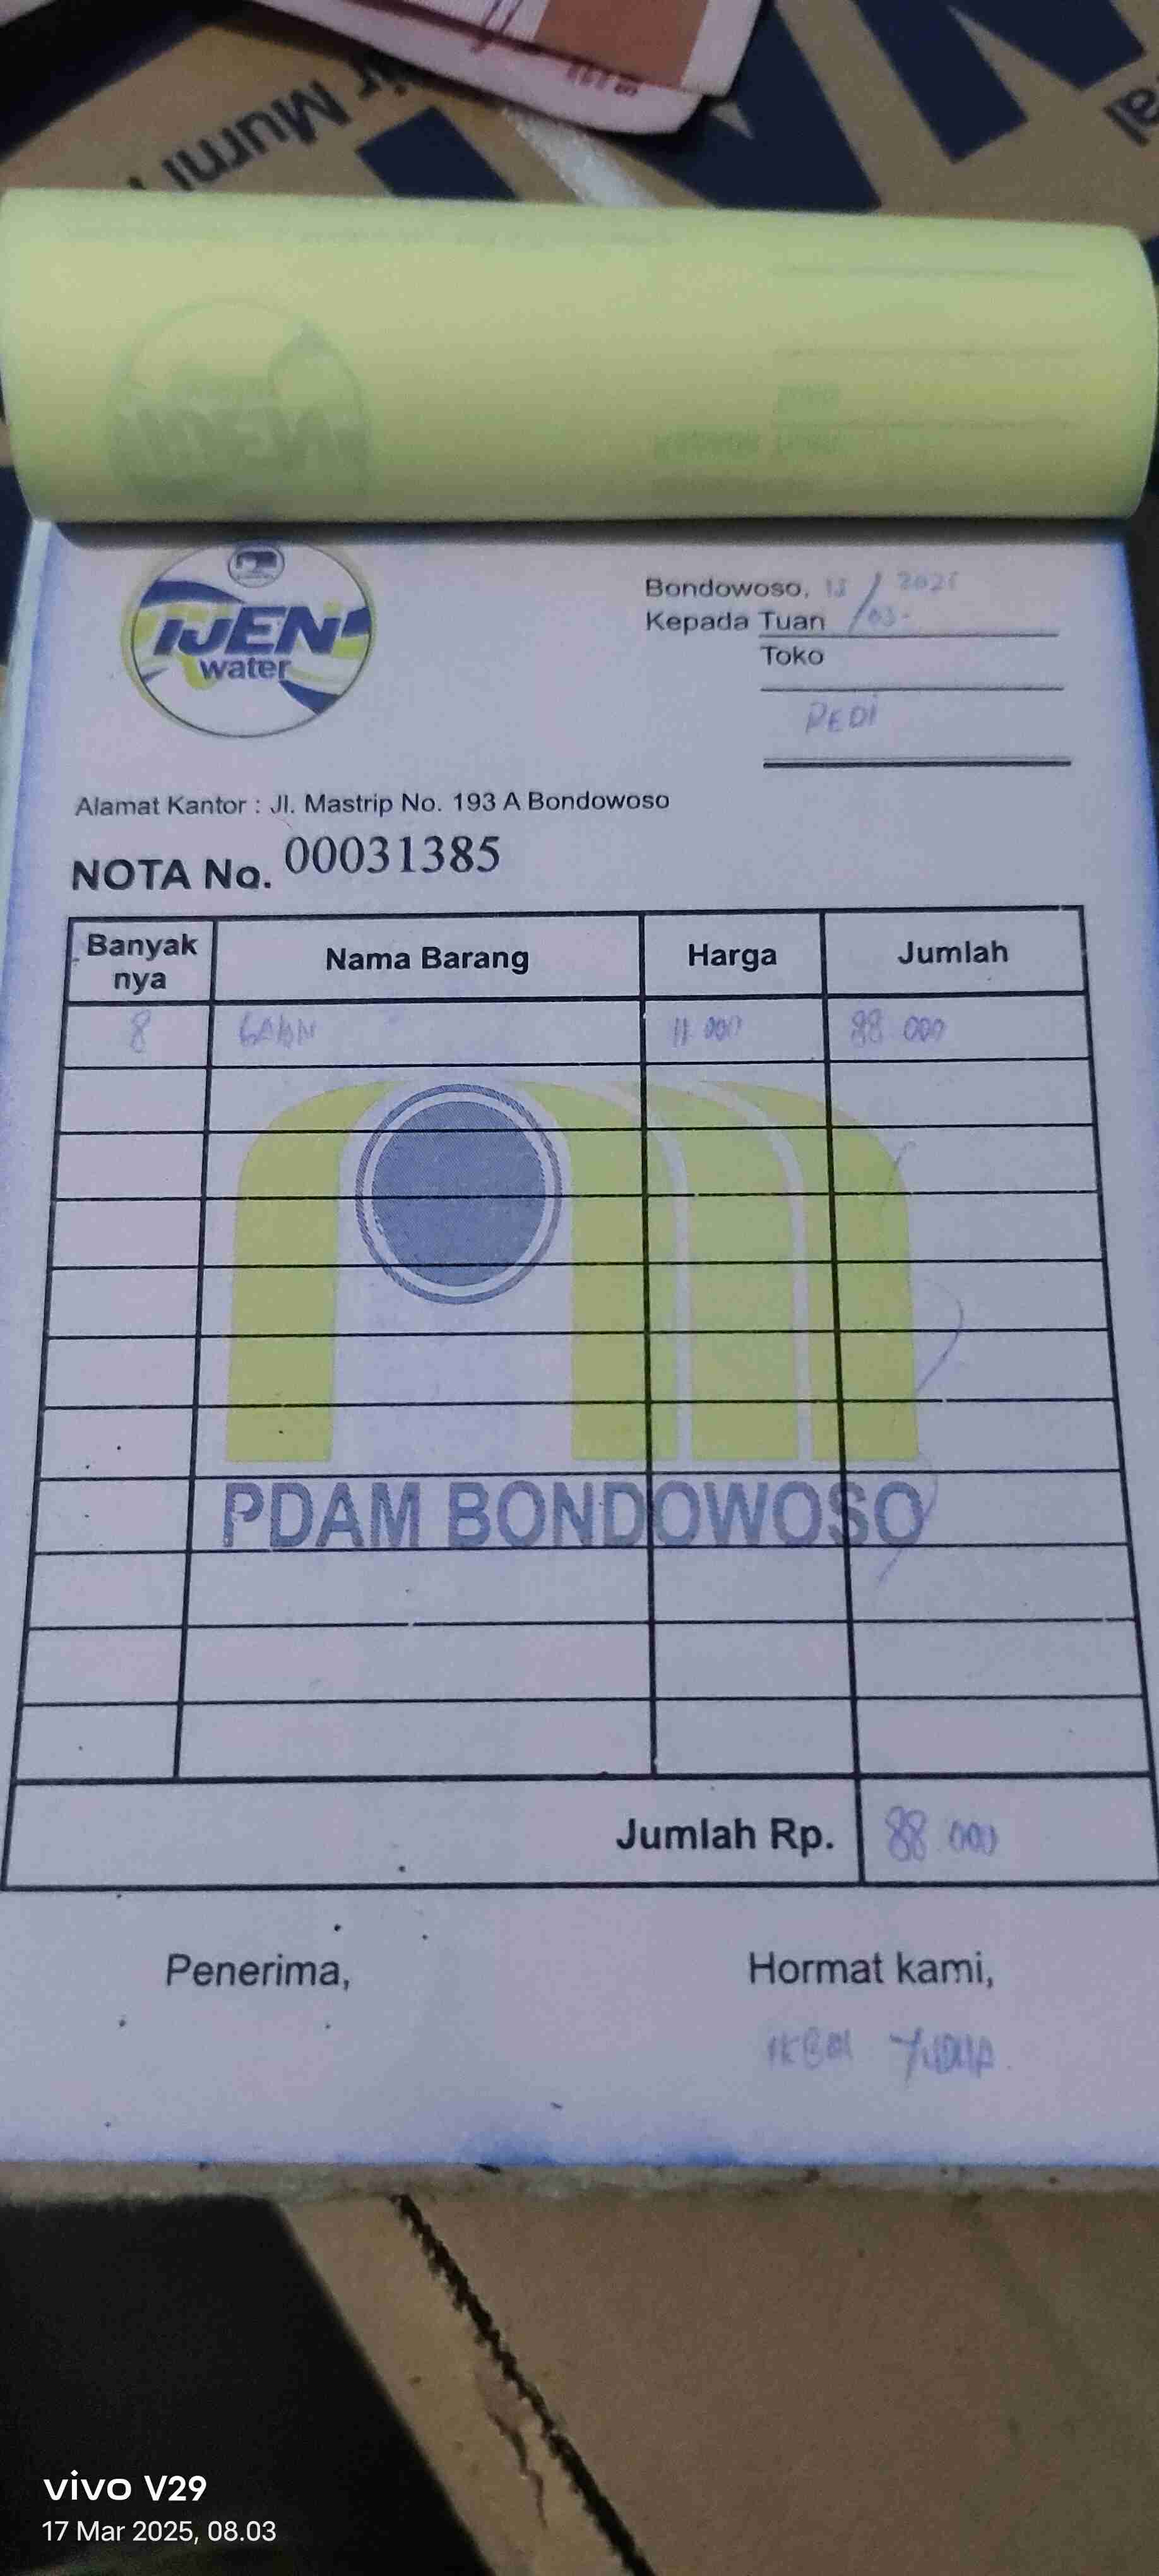 ir Murni
IJEN
water
Bondowoso, 13 / 03 - 2025
Kepada Tuan
Toko
PEDI
Alamat Kantor : Jl. Mastrip No. 193 A Bondowoso
NOTA No. 00031385
Banyak nya Nama Barang Harga Jumlah
8 GALON 11 000 88 000
PDAM BONDOWOSO
Jumlah Rp. 88 000
Penerima, Hormat kami,
IKBAL YUDHA
vivo V29
17 Mar 2025, 08.03